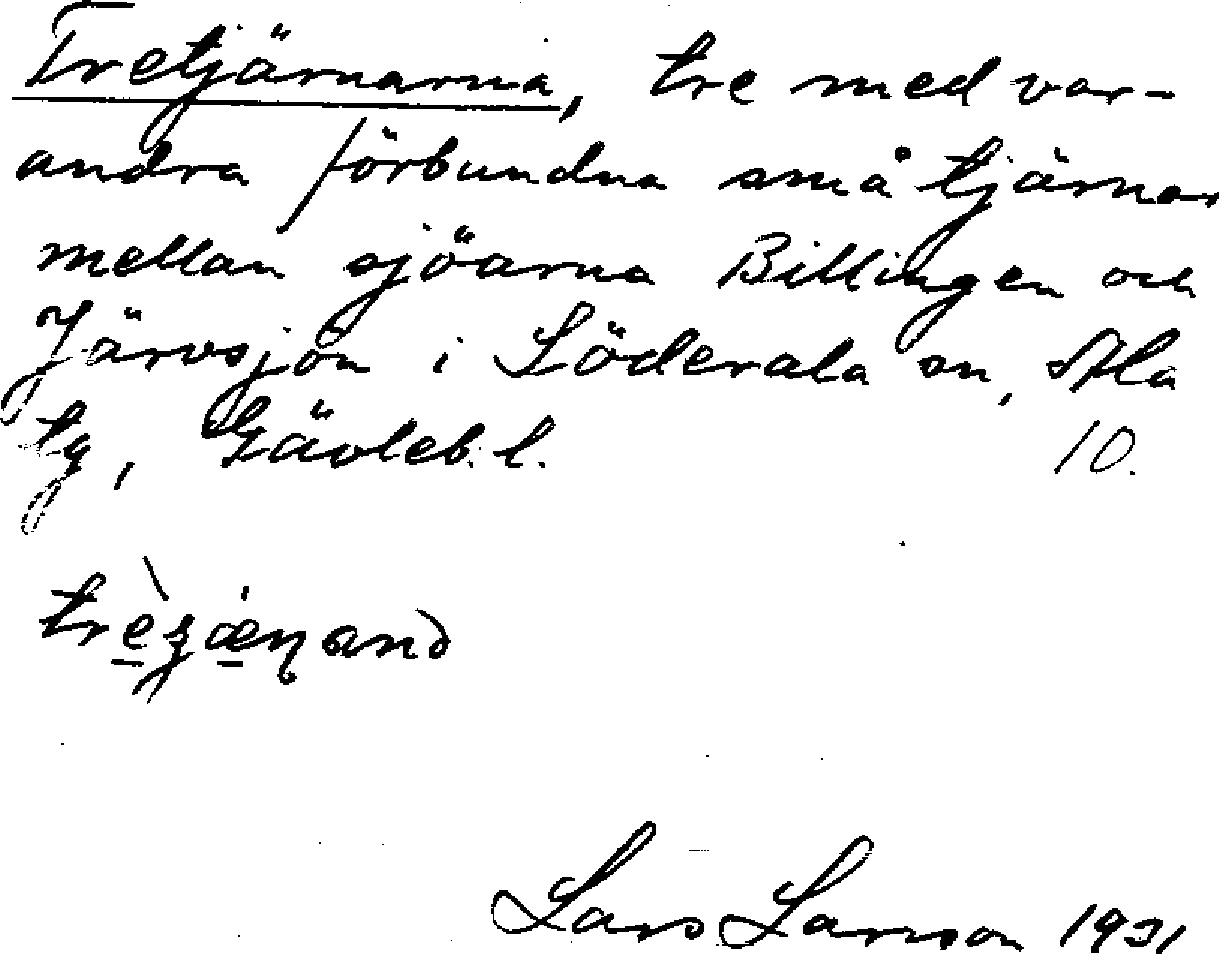 Tretjärnarna, tre med var-
andra förbundna små tjärnar
mellan sjöarna Billingen och
Järvsjön i Söderala sn, Ala
tg, Gävleb. l. 10.
Lars Larsson 1931